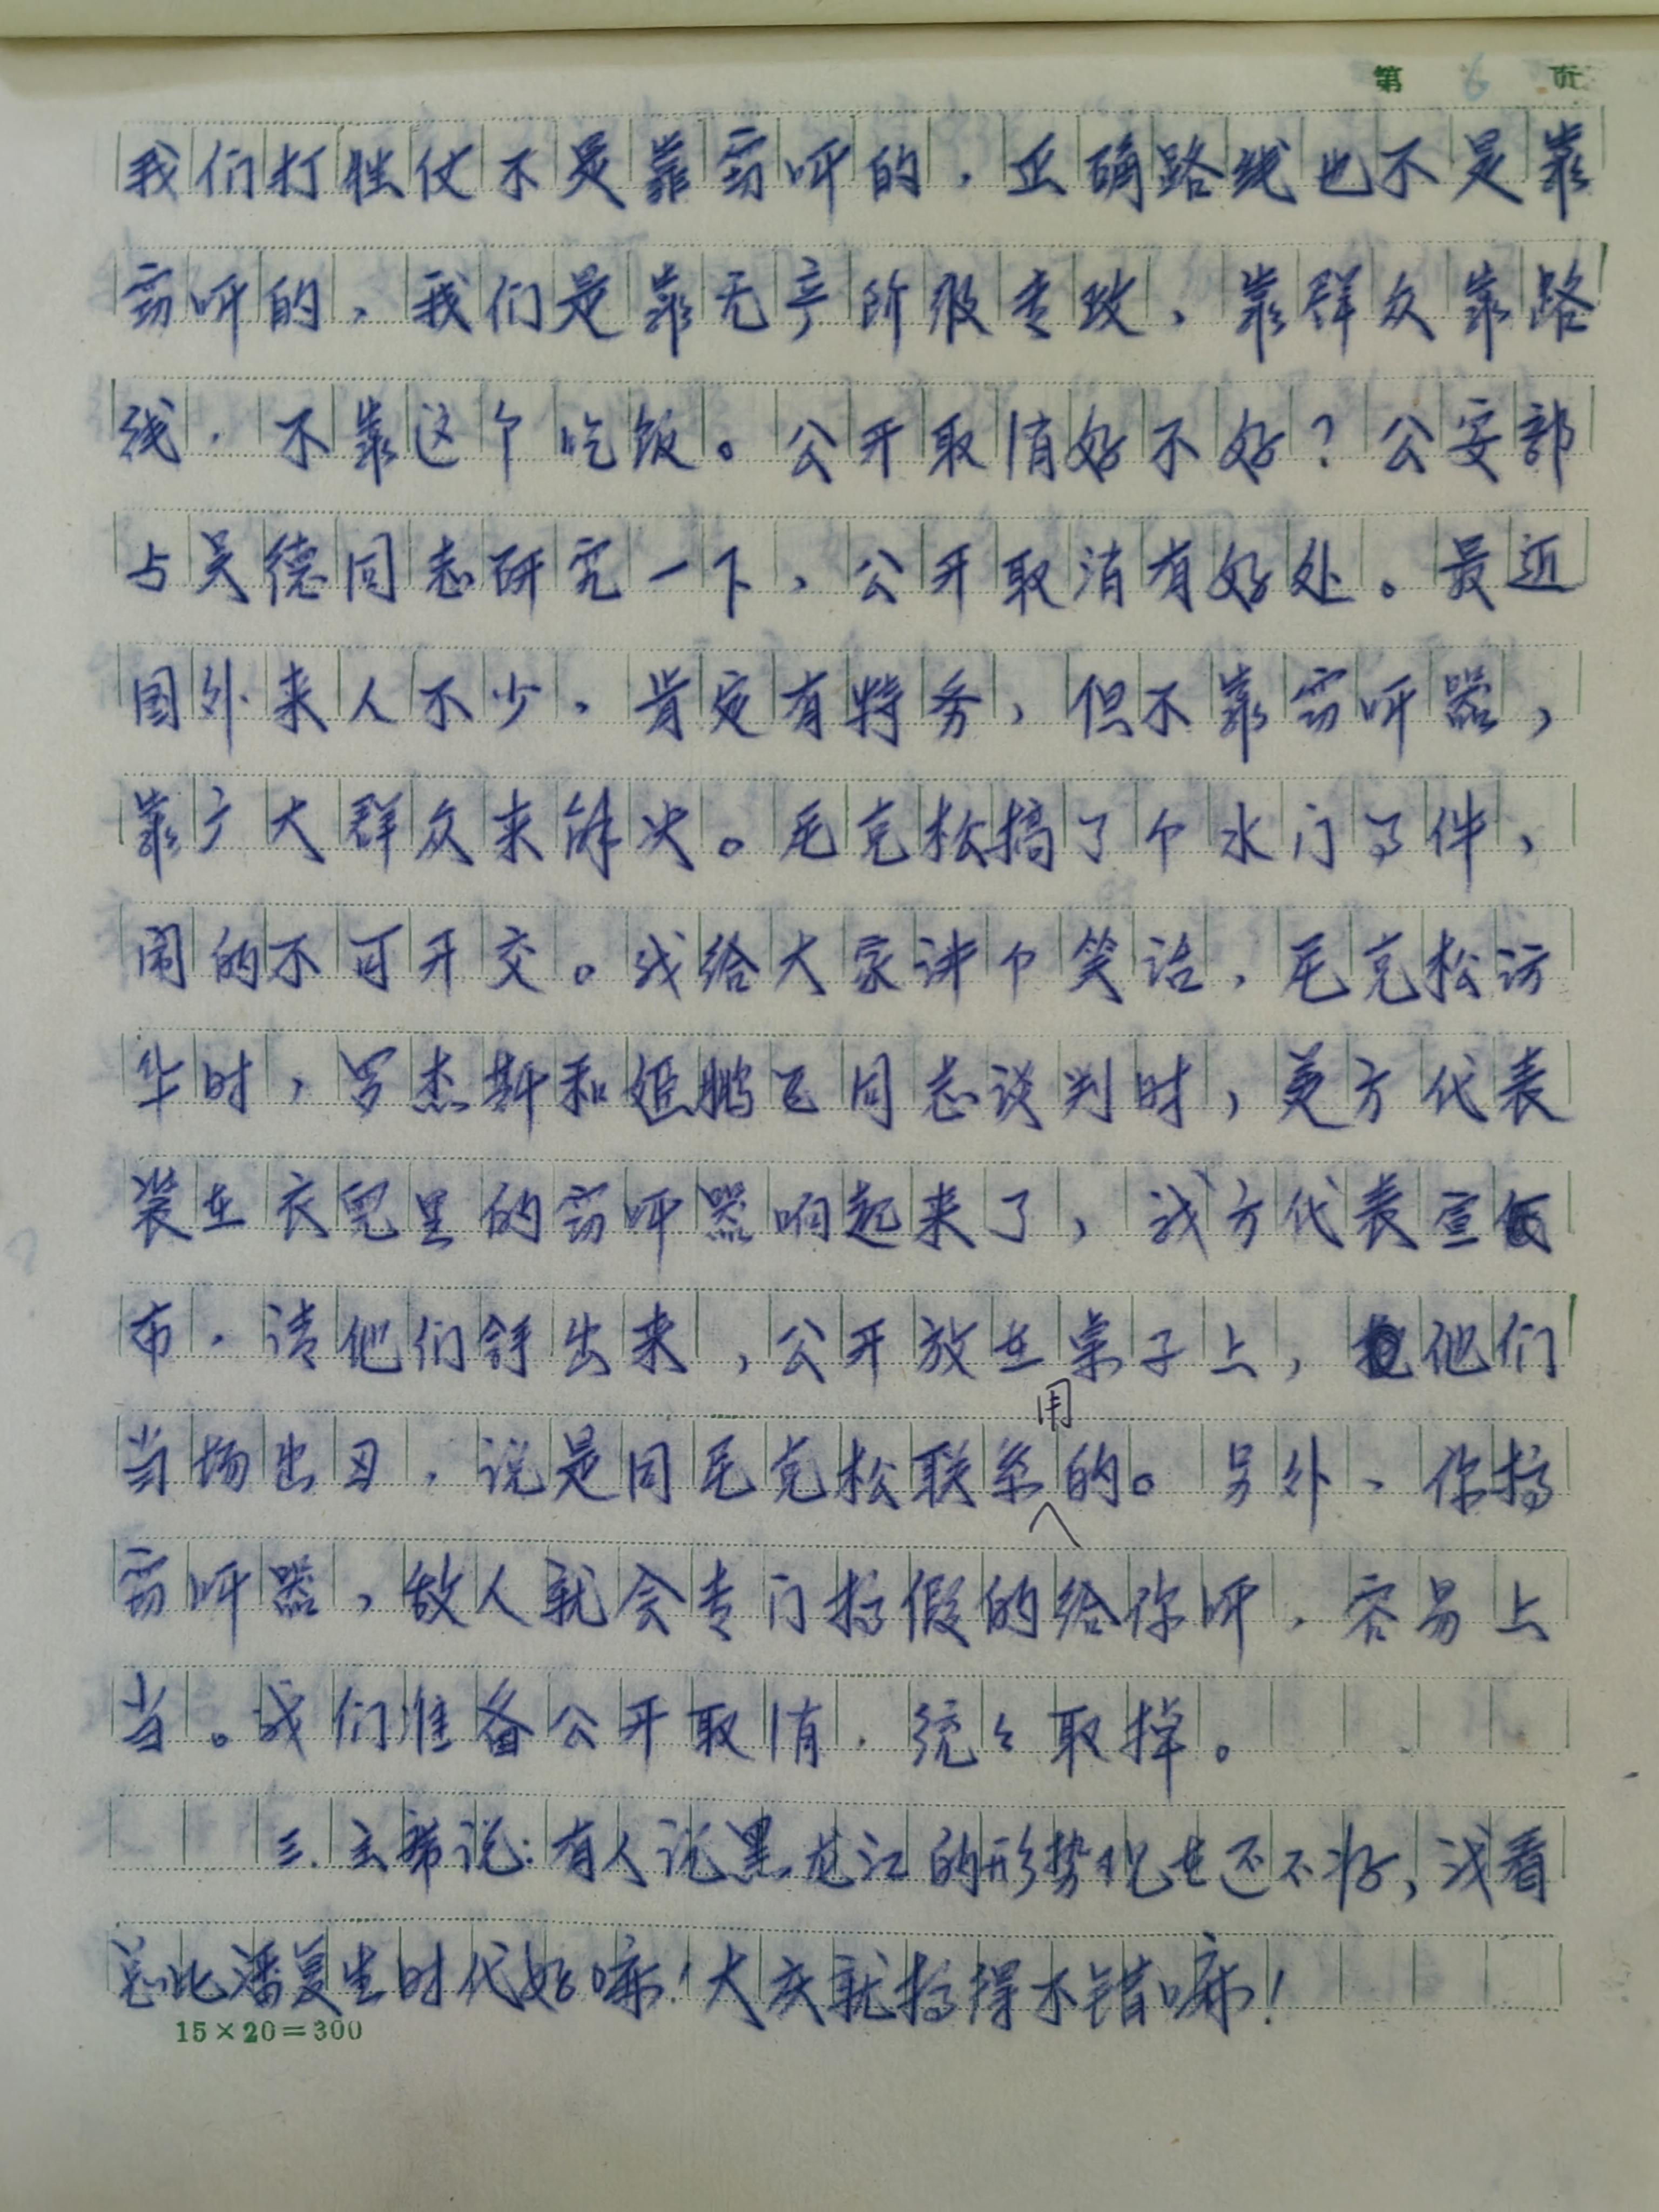 第 6 页
我们打胜仗不是靠窃听的，正确路线也不是靠
窃听的，我们是靠无产阶级专政，靠群众靠路
线，不靠这个吃饭。公开取消好不好？公安部
与吴德同志研究一下，公开取消有好处。最近
国外来人不少，肯定有特务，但不靠窃听器，
靠广大群众来解决。尼克松搞了个水门事件，
闹的不可开交。我给大家讲个笑话，尼克松访
华时，罗杰斯和姬鹏飞同志谈判时，美方代表
装在衣兜里的窃听器响起来了，我方代表宣
布，请他们拿出来，公开放在桌子上，他们
当场出丑，说是同尼克松联系用的。另外，你搞
窃听器，敌人就会专门搞假的给你听，容易上
当。我们准备公开取消，统统取掉。
三.主席说：有人说黑龙江的形势现在还不好，我看
总比潘复生时代好嘛！大庆就搞得不错嘛！
15×20＝300